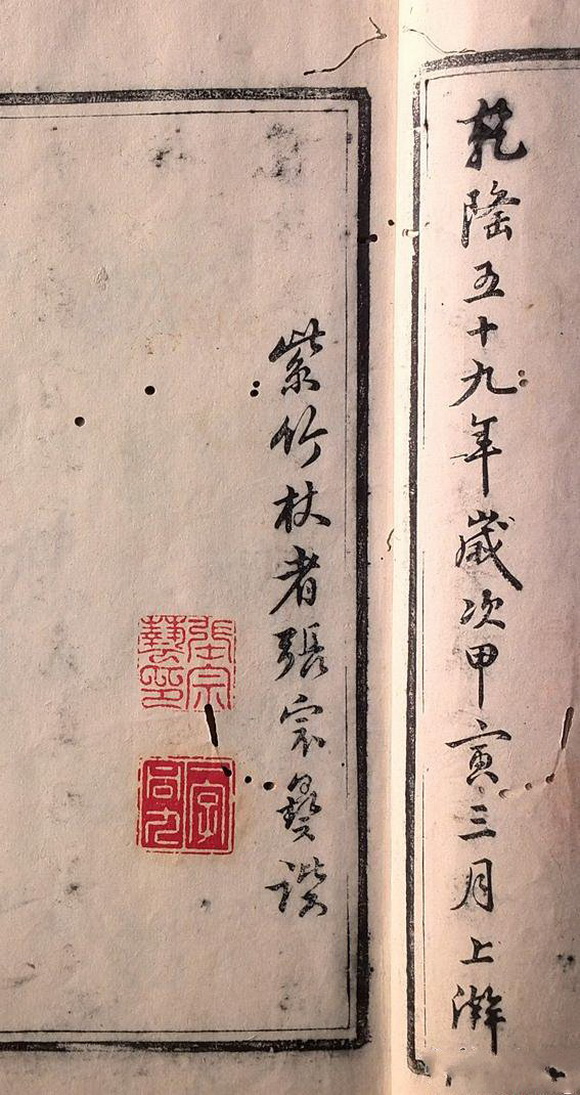 乾隆五十九年歲次甲寅三月上澣
紫竹杖者張宗藝譔
張宗藝印